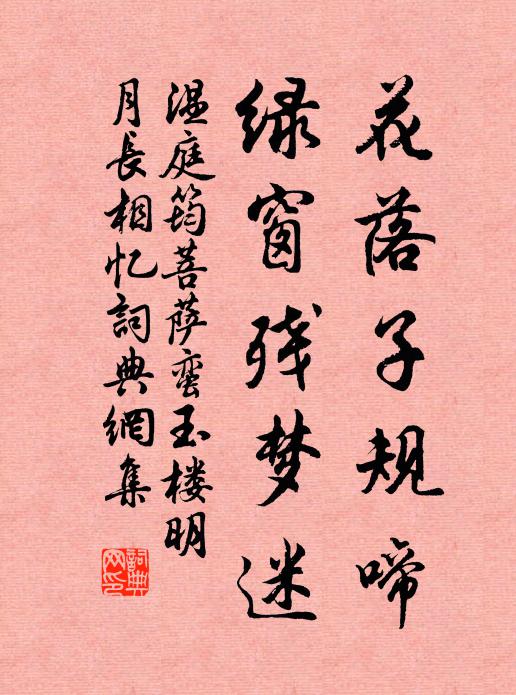 花落子规啼
绿窗残梦迷
温庭筠菩萨蛮玉楼明
月长相忆词典网集
词典网印